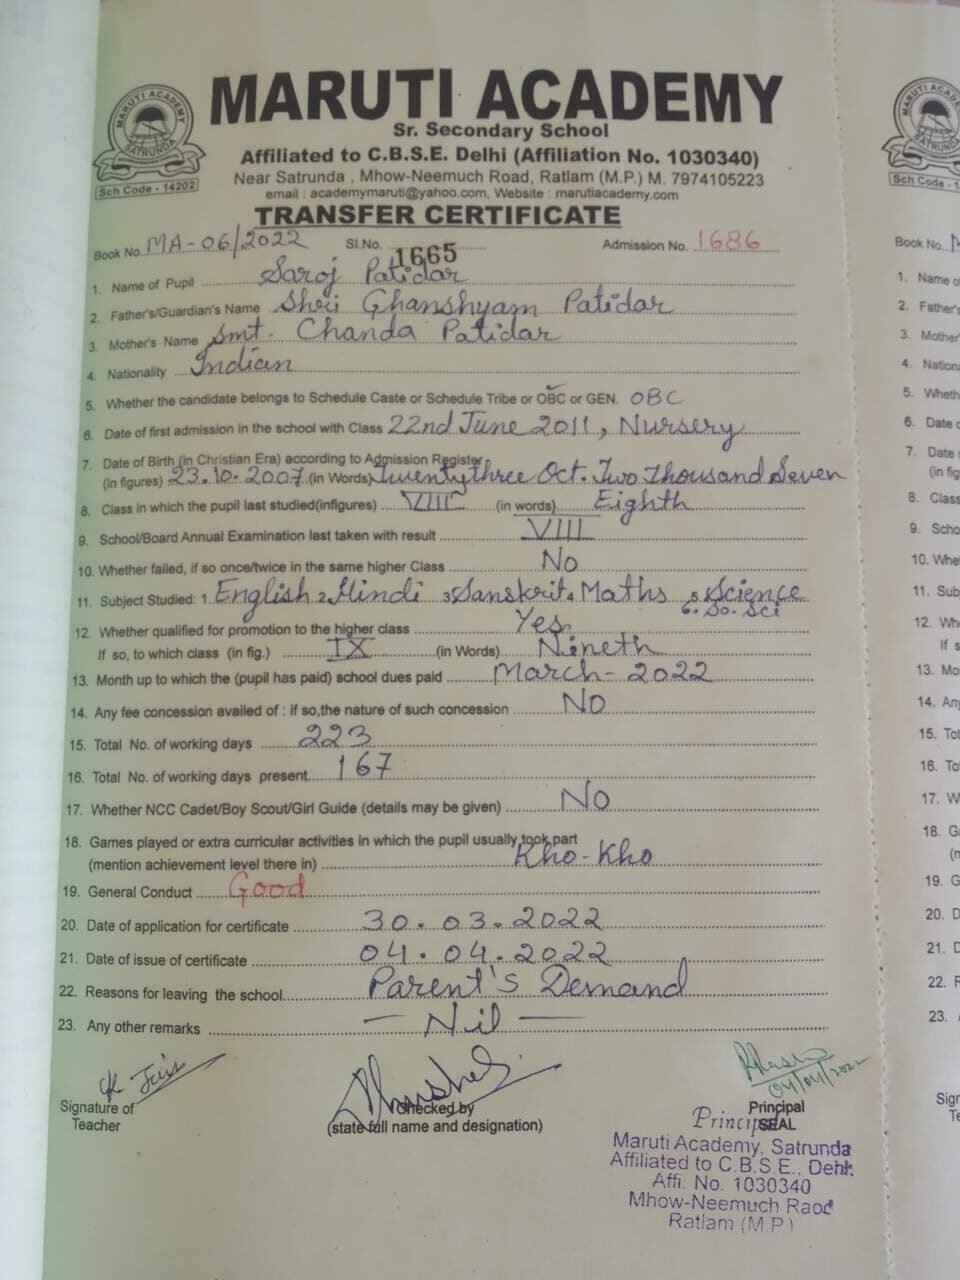 MARUTI ACADEMY
Sr. Secondary School
Affiliated to C.B.S.E. Delhi (Affiliation No. 1030340)
Near Satrunda , Mhow-Neemuch Road, Ratlam (M.P.) M. 7974105223
email : academymaruti@yahoo.com, Website : marutiacademy.com
MARUTI ACADEMY
SATRUNDA
Sch Code - 14202
TRANSFER CERTIFICATE
Book No. MA-06/2022 Sl.No. 1665 Admission No. 1686
1. Name of Pupil Saroj Patidar
2. Father's/Guardian's Name Shri Ghanshyam Patidar
3. Mother's Name Smt. Chanda Patidar
4. Nationality Indian
5. Whether the candidate belongs to Schedule Caste or Schedule Tribe or OBC or GEN. OBC
6. Date of first admission in the school with Class 22nd June 2011, Nursery
7. Date of Birth (in Christian Era) according to Admission Register
(in figures) 23.10.2007 (in Words) Twentythree Oct. Two Thousand Seven
8. Class in which the pupil last studied(infigures) VIII (in words) Eighth
9. School/Board Annual Examination last taken with result VIII
10. Whether failed, if so once/twice in the same higher Class No
11. Subject Studied: 1. English 2. Hindi 3. Sanskrit 4. Maths 5. Science
6. So. Sci
12. Whether qualified for promotion to the higher class Yes
If so, to which class (in fig.) IX (in Words) Nineth
13. Month up to which the (pupil has paid) school dues paid March-2022
14. Any fee concession availed of : if so,the nature of such concession No
15. Total No. of working days 223
16. Total No. of working days present 167
17. Whether NCC Cadet/Boy Scout/Girl Guide (details may be given) No
18. Games played or extra curricular activities in which the pupil usually took part
(mention achievement level there in) Kho-Kho
19. General Conduct Good
20. Date of application for certificate 30.03.2022
21. Date of issue of certificate 04.04.2022
22. Reasons for leaving the school Parent's Demand
23. Any other remarks - Nil -
04/04/2022
Signature of
Teacher
Checked by
(state full name and designation)
Principal
SEAL
Principal
Maruti Academy, Satrunda
Affiliated to C.B.S.E., Dehli
Affi. No. 1030340
Mhow-Neemuch Raod
Ratlam (M.P.)
Book No.
1. Name of
2. Father's
3. Mother'
4. Nation
5. Wheth
6. Date
7. Date
(in fig
8. Class
9. Scho
10. Whe
11. Sub
12. Wh
If s
13. Mo
14. Any
15. Tot
16. To
17. W
18. G
19. G
20. D
21. D
22. R
23.
Sign
Te